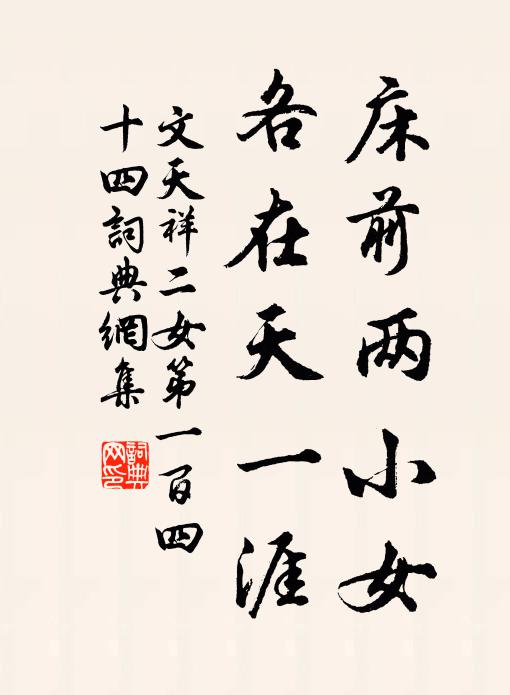 床前两小女
各在天一涯
文天祥二女第一百四
十四詞典網集
詞典
网印